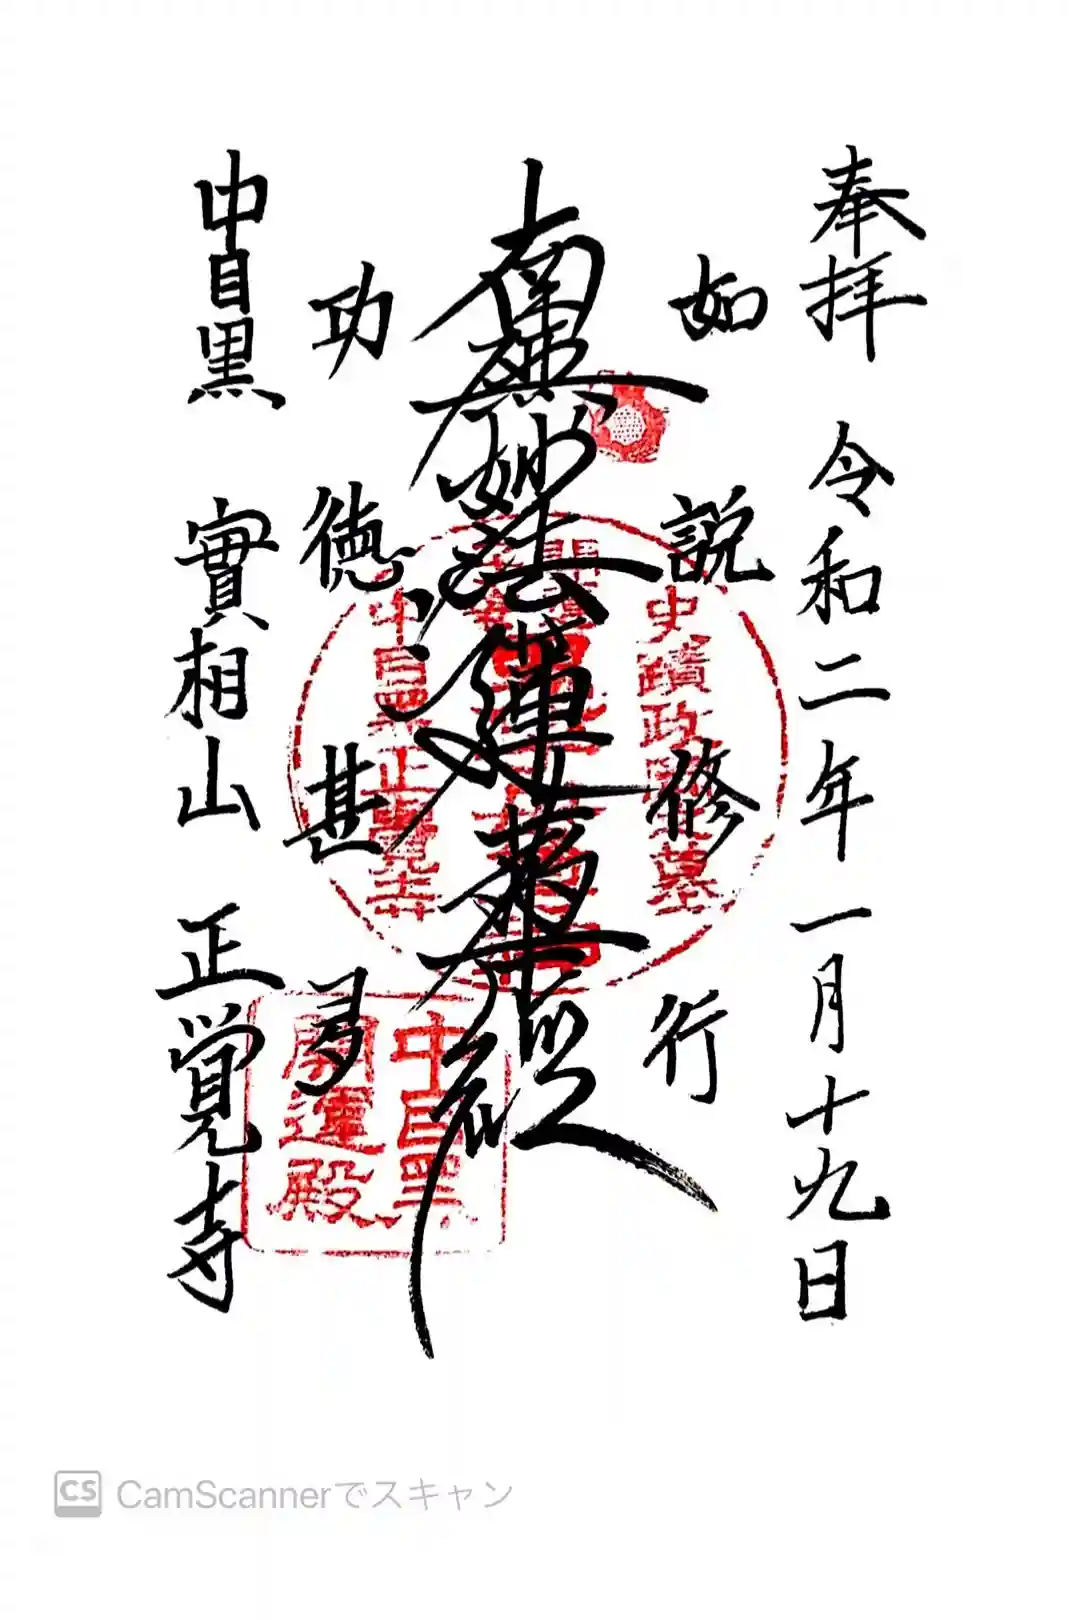 奉拝 令和二年一月十九日
如説修行
南無妙法蓮華経
功徳甚多
中目黒 實相山 正覚寺
史蹟政岡墓
中目黒正覚寺
中目黒
開運殿
CS CamScannerでスキャン